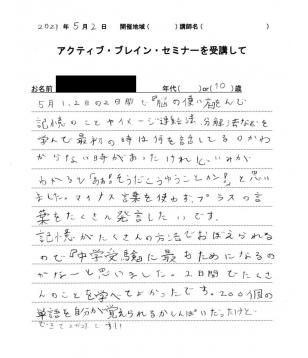 2023年5月2日 開催地域( )講師名( )
アクティブ・ブレイン・セミナーを受講して
お名前 年代( )or(10)歳
5月1、2日の2日間で『脳の使い方』を学んで
記憶のことやイメージ連結法、分解法などを
学んで最初の時は何を話してるのかわ
からない時があったけれど、いみが
わかると「ああ!そうだこうゆうことか!」と思い
ました。マイナス言葉を使わず、プラスの言
葉をたくさん発言したいです。
記憶がたくさんの方法でおぼえられる
ので『中学受験に最もためになるの
かなーと思いました。2日間でたくさ
んのことを学べてよかったです。200個の
単語を自分が覚えられるかしんぱいだったけど
できてよかったです!!